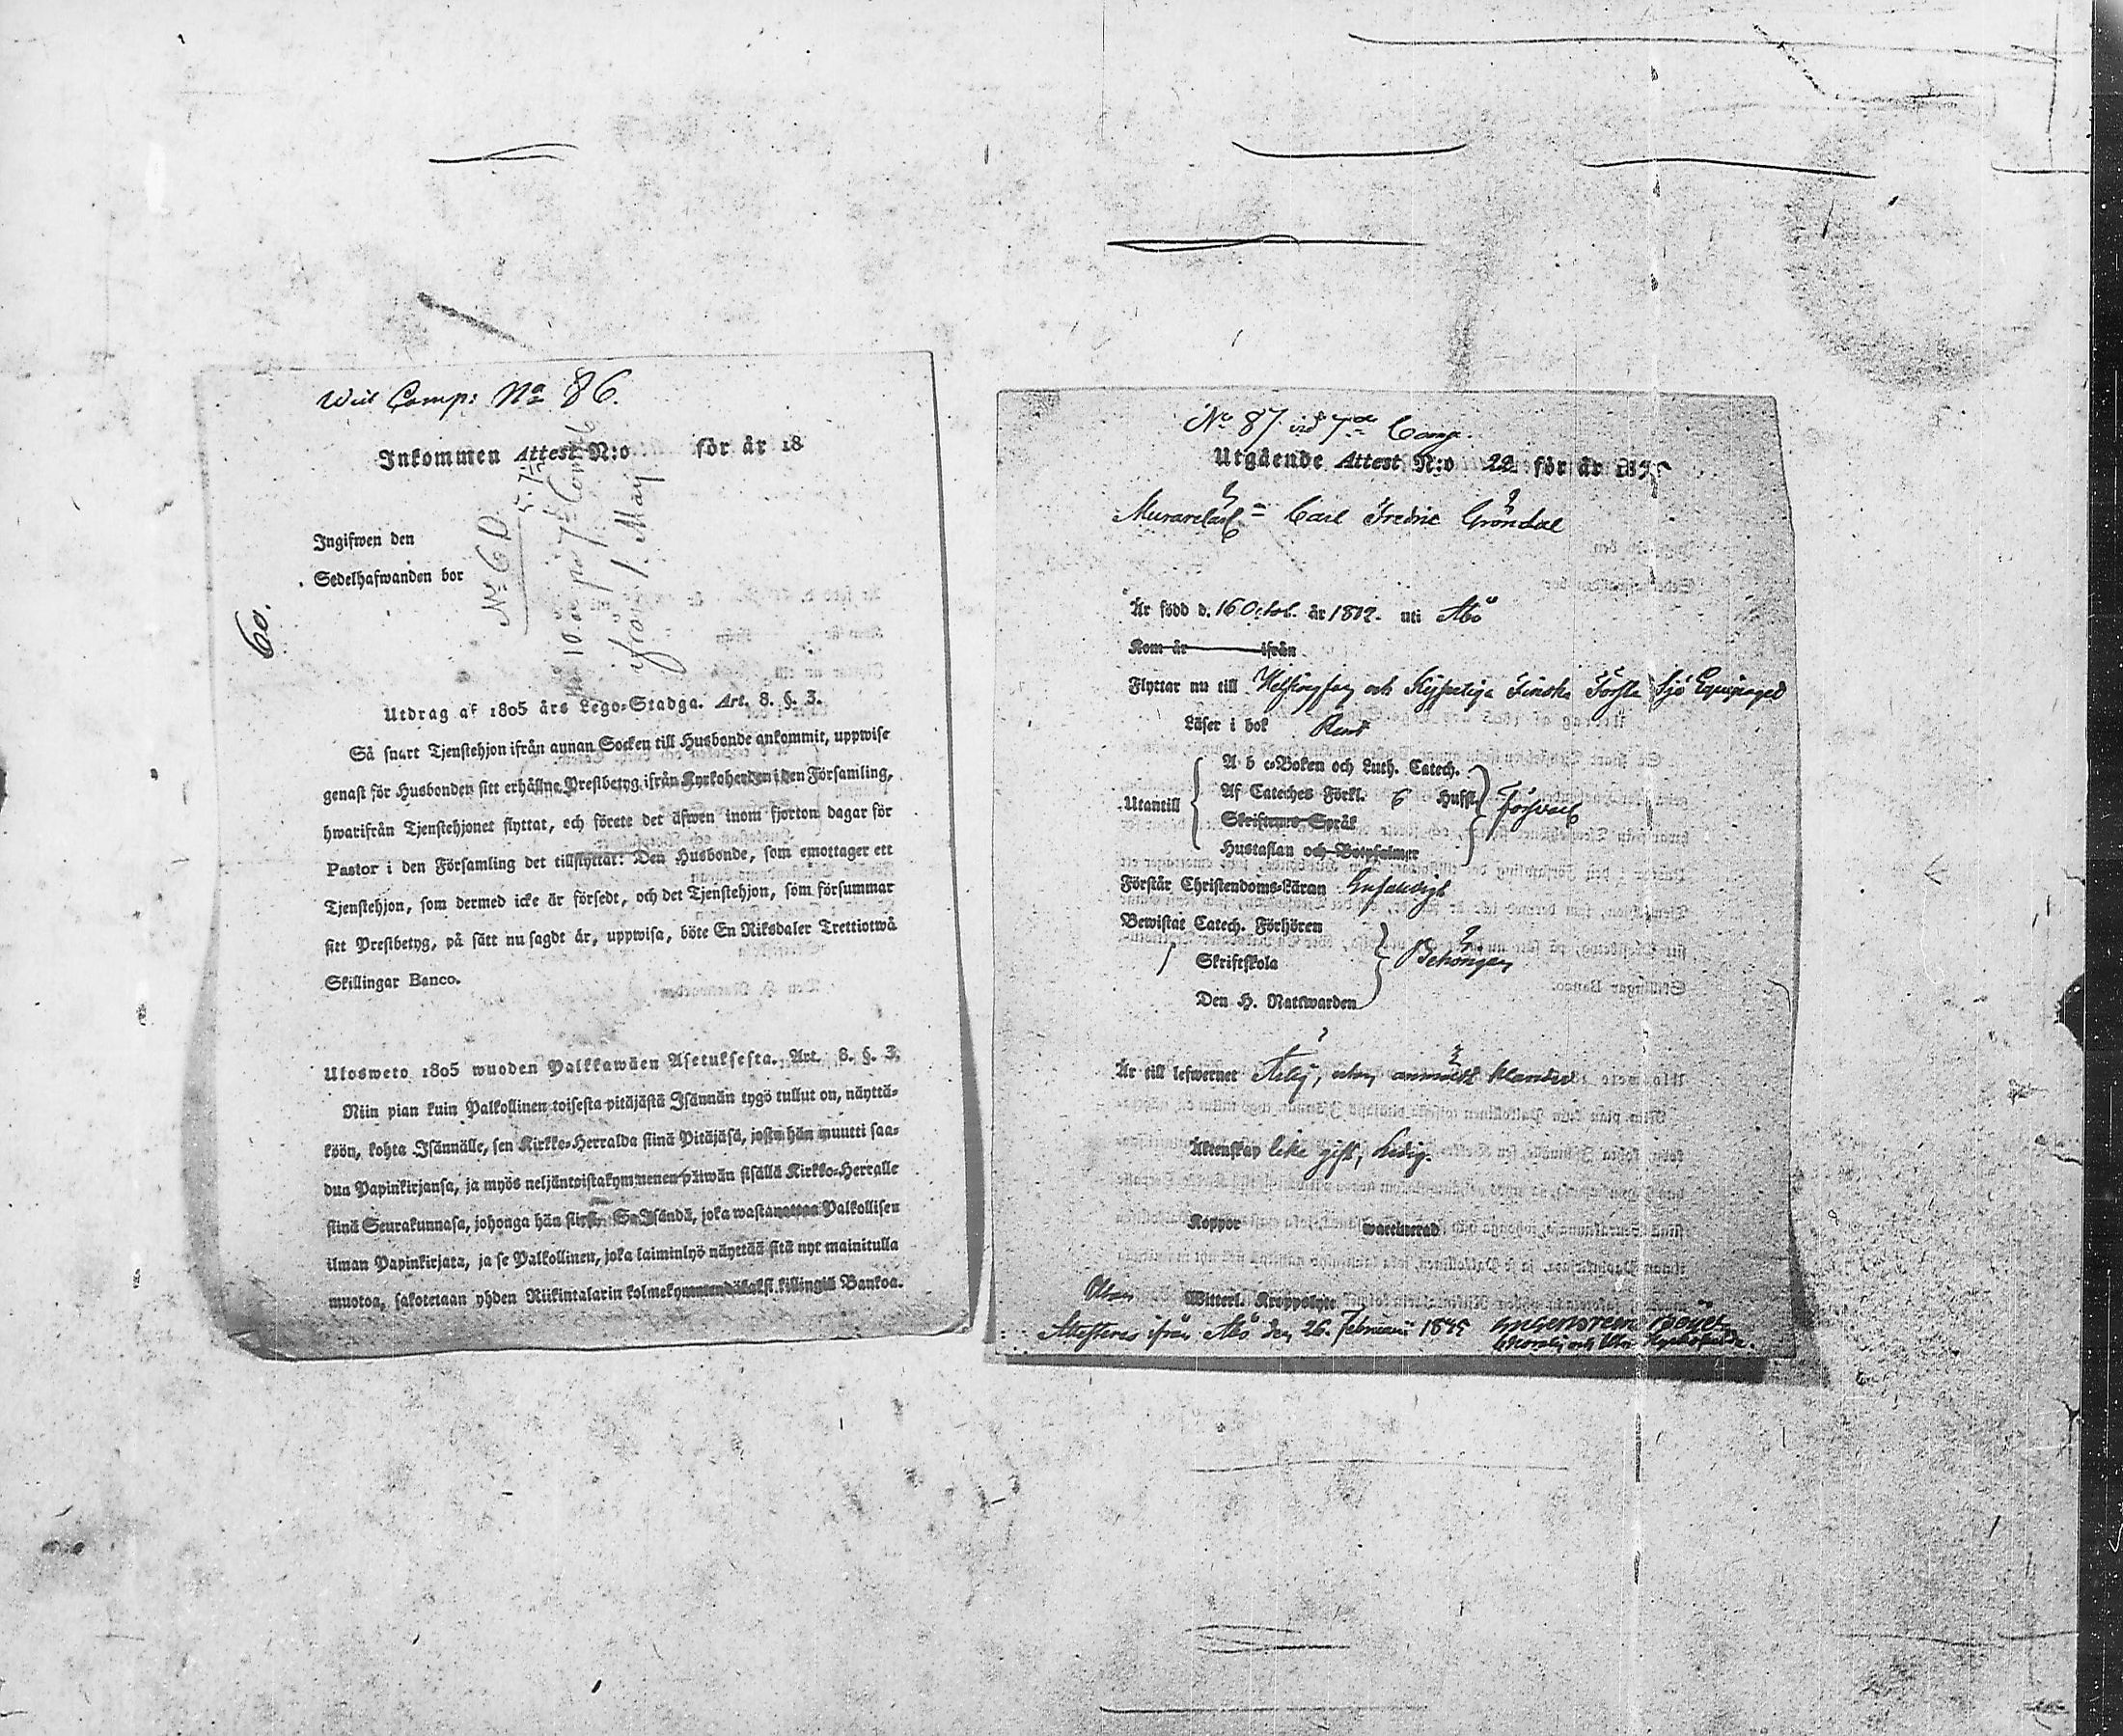 Wid Comp: No 86.
Inkommen Attest N:o för år 18
Ingifwen den
Sedelhafwanden bor
No 6 D.
1. May
60.
Utdrag af 1805 års Lego-Stadga. Art. 8. §. 3.
Så snart Tjenstehjon ifrån annan Socken till Husbonde ankommit, uppwise
genast för Husbonden sitt erhållne Prestbetyg ifrån Kyrkoherden i den Församling,
hwarifrån Tjenstehjonet flyttat, och förete det äfwen inom fjorton dagar för
Pastor i den Församling det tillflyttat: Den Husbonde, som emottager ett
Tjenstehjon, som dermed icke är försedt, och det Tjenstehjon, som försummar
sitt Prestbetyg, på sätt nu sagdt är, uppwisa, böte En Riksdaler Trettiotwå
Skillingar Banco.
Ulosweto 1805 wuoden Palkkawäen Asetuksesta. Art. 8. §. 3.
Niin pian kuin Palkollinen toisesta pitäjästä Isännän tygö tullut on, näyttä-
köön, kohta Isännälle, sen Kirkko-Herralda siinä Pitäjäsä, josta hän muutti saa-
dun Papinkirjansa, ja myös neljäntoistakymmenen päiwän sisällä Kirkko-Herralle
siinä Seurakunnasa, johonga hän siirsi. Se Isändä, joka wastanottaa Palkollisen
ilman Papinkirjata, ja se Palkollinen, joka laiminlyö näyttää sitä nyt mainitulla
muotoa, sakotetaan yhden Riikintalarin kolmekymmendäkaksi killingiä Bankoa.
No 87 vid 7de Comp.
Utgående Attest N:o 22 för år 1845
Murarelärl. Carl Fredric Gröndal
Är född d. 16 Octob. år 1812. uti Åbo
Kom år ifrån
Flyttar nu till Helsingfors och Kejserliga Finska Första Sjö Equipaget
Läser i bok Rent
Utantill
A b c-Boken och Luth. Catech.
Af Cateches Förkl. 6 Hufst.
Skriftenes Språk
Hustaflan och Botpsalmer
Försvarl.
Förstår Christendoms-Läran Enfaldigt
Bewistat Catech. Förhören
Skriftskola
Den H. Nattwarden
Behörigen
Är till lefwernet Ärlig, utan anmärkt klander
Äktenskap Icke gift, ledig.
Koppor waccinerad
Utan Witterl. Kroppslyte
Attesteras ifrån Åbo den 26. Februarii 1845